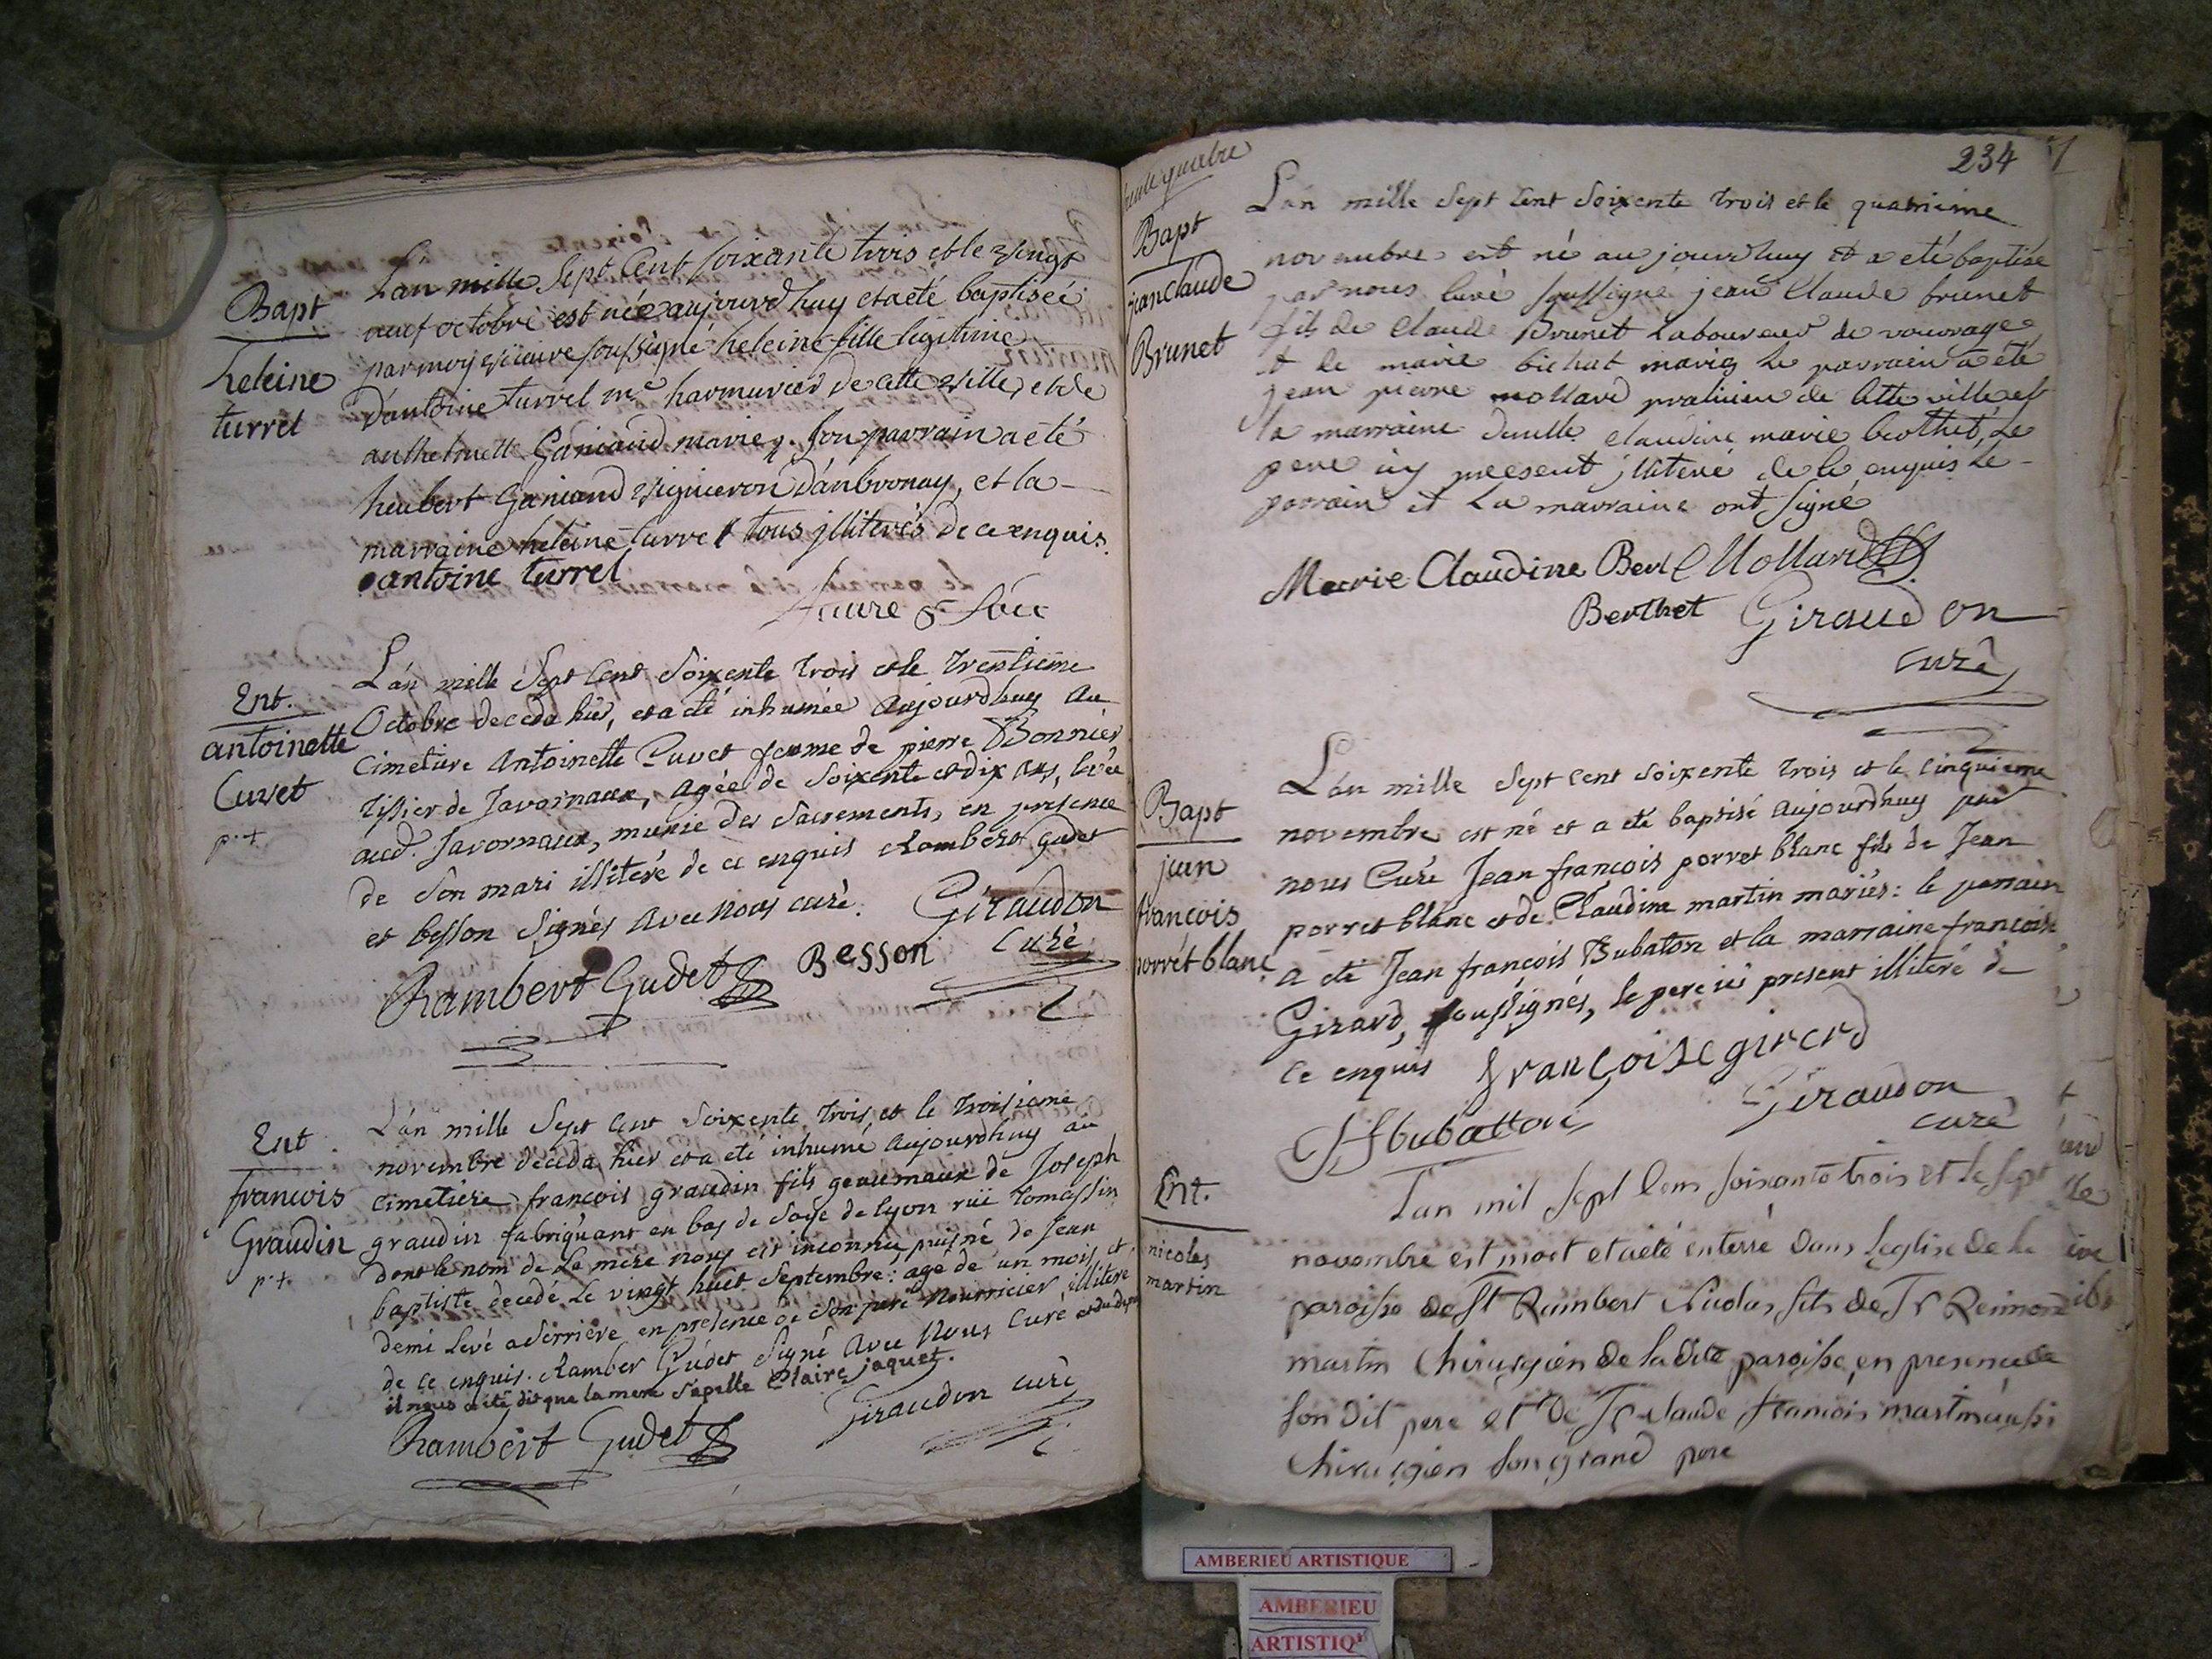 Bapt
heleine
turrel
L'an mille Sept Cent soixante trois et le vingt
neuf octobre est née aujourd'huy et a eté baptiseé
par moy vicaire soussigné heleine fille legitime
d'antoine turrel me harmurier de cette ville, et de
anthelmette Ganiand mariez. Son parrain a eté
heubert Ganiand vigneron d'anbronay, et la
marraine heleine turrel tous jlliterés de ce enquis.
antoine turrel
Ent.
antoinette
Cuvet
p.+
L'an mille Sept Cent Soixente trois et le trentieme
Octobre deceda hier, et a eté inhumée aujourdhuy au
cimetiere Antoinette Cuvet femme de pierre Bonnier
tissier de Javornaux, agée de soixente et dix ans, levée
aud. Javornaux, munie des Sacrements, en presence
de son mari illiteré de ce enquis Rambert Gudet
et besson signés avec nous curé.
Giraudon
Curé
Rambert Gudet
Besson
Ent
francois
Graudin
p.+.
L'an mille Sept Cent Soixente trois, et le troisieme
novembre deceda hier et a eté inhumé aujourdhuy au
cimetiere francois graudin fils geaumaux de Joseph
graudin fabriquant en bas de Soye de lyon rüe tomassin
dont le nom de la mere nous est inconnu, puisné de Jean
baptiste decedé le vingt huit Septembre: agé de un mois et
demi levé a Serriere en presence de son pere nourricier illiteré
de ce enquis. Ramber Gudet signé avec nous Curé
il nous a eté dit que la mere s'apelle Claire jaquet.
Giraudon curé
Rambert Gudet
234
Bapt
jean Claude
Brunet
L'an mille Sept Cent Soixente trois et le quatrieme
novembre est né aujourdhuy et a eté baptisé
par nous Curé soussigné jean Claude brunet
fils de Claude Brunet Laboureur de vouvrage
et de marie bichat mariés Le parrain a eté
jean pierre mollard praticien de cette ville et
la marraine Dmlle claudine marie berthet, Le
pere icy present jlliteré de ce enquis Le
parrain et La marraine ont signé
Marie Claudine Ber Mollard
Berthet Giraudon
curé
Bapt
jean
francois
porret blanc
L'an mille Sept Cent Soixente trois et le cinquieme
novembre est né et a eté baptisé aujourdhuy par
nous Curé Jean francois porret blanc fils de Jean
porret blanc et de Claudine martin mariés: le parrain
a eté Jean francois Bubaton et la marraine francoise
Girard, soussignés, le pere ici present illiteré de
ce enquis francoise girard
Giraudon
curé
Ent.
nicolas
martin
L'an mil sept Cens soixante trois et le sept
novembre est mort et a eté enterré dans Leglise de la
paroisse de St Rambert Nicolas fils de Sr Reimond
martin Chirurgien de ladite paroisse, en presence de
son dit pere et de Sr Claude francois martin aussi
Chirurgien son grand pere
AMBERIEU ARTISTIQUE
AMBERIEU
ARTISTIQ